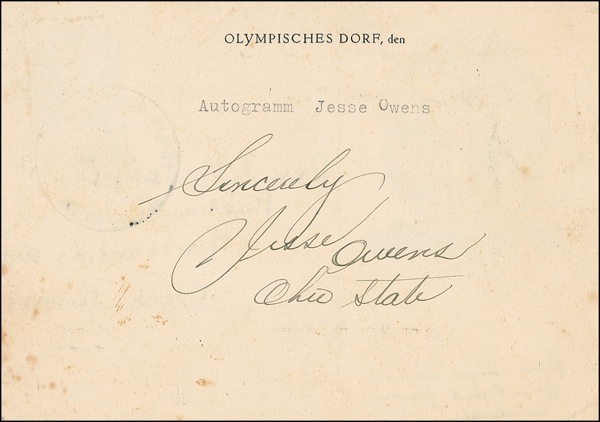 OLYMPISCHES DORF, den
Autogramm Jesse Owens
Sincerely
Jesse Owens
Ohio State